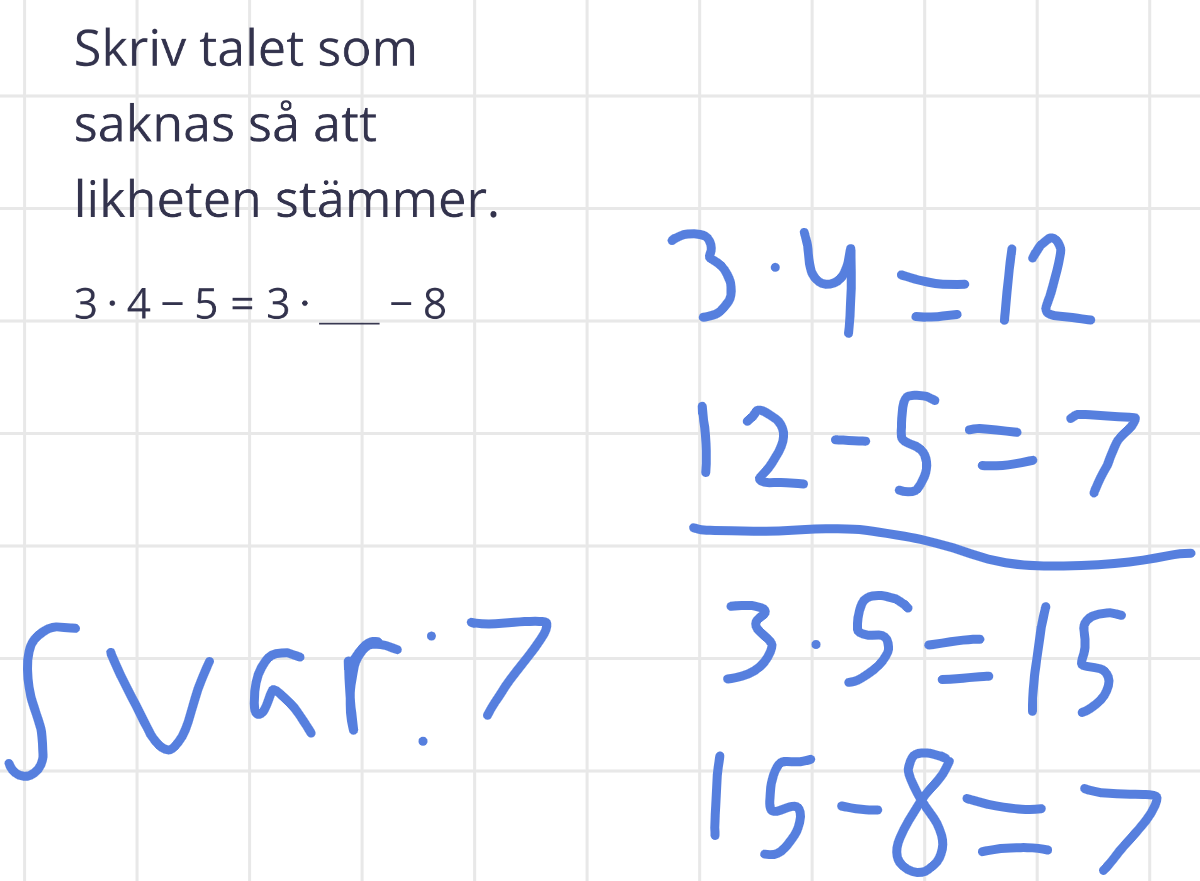 Skriv talet som
saknas så att
likheten stämmer.
3 · 4 − 5 = 3 · ___ − 8
3 · 4 = 12
12 - 5 = 7
3 · 5 = 15
15 - 8 = 7
Svar: 7